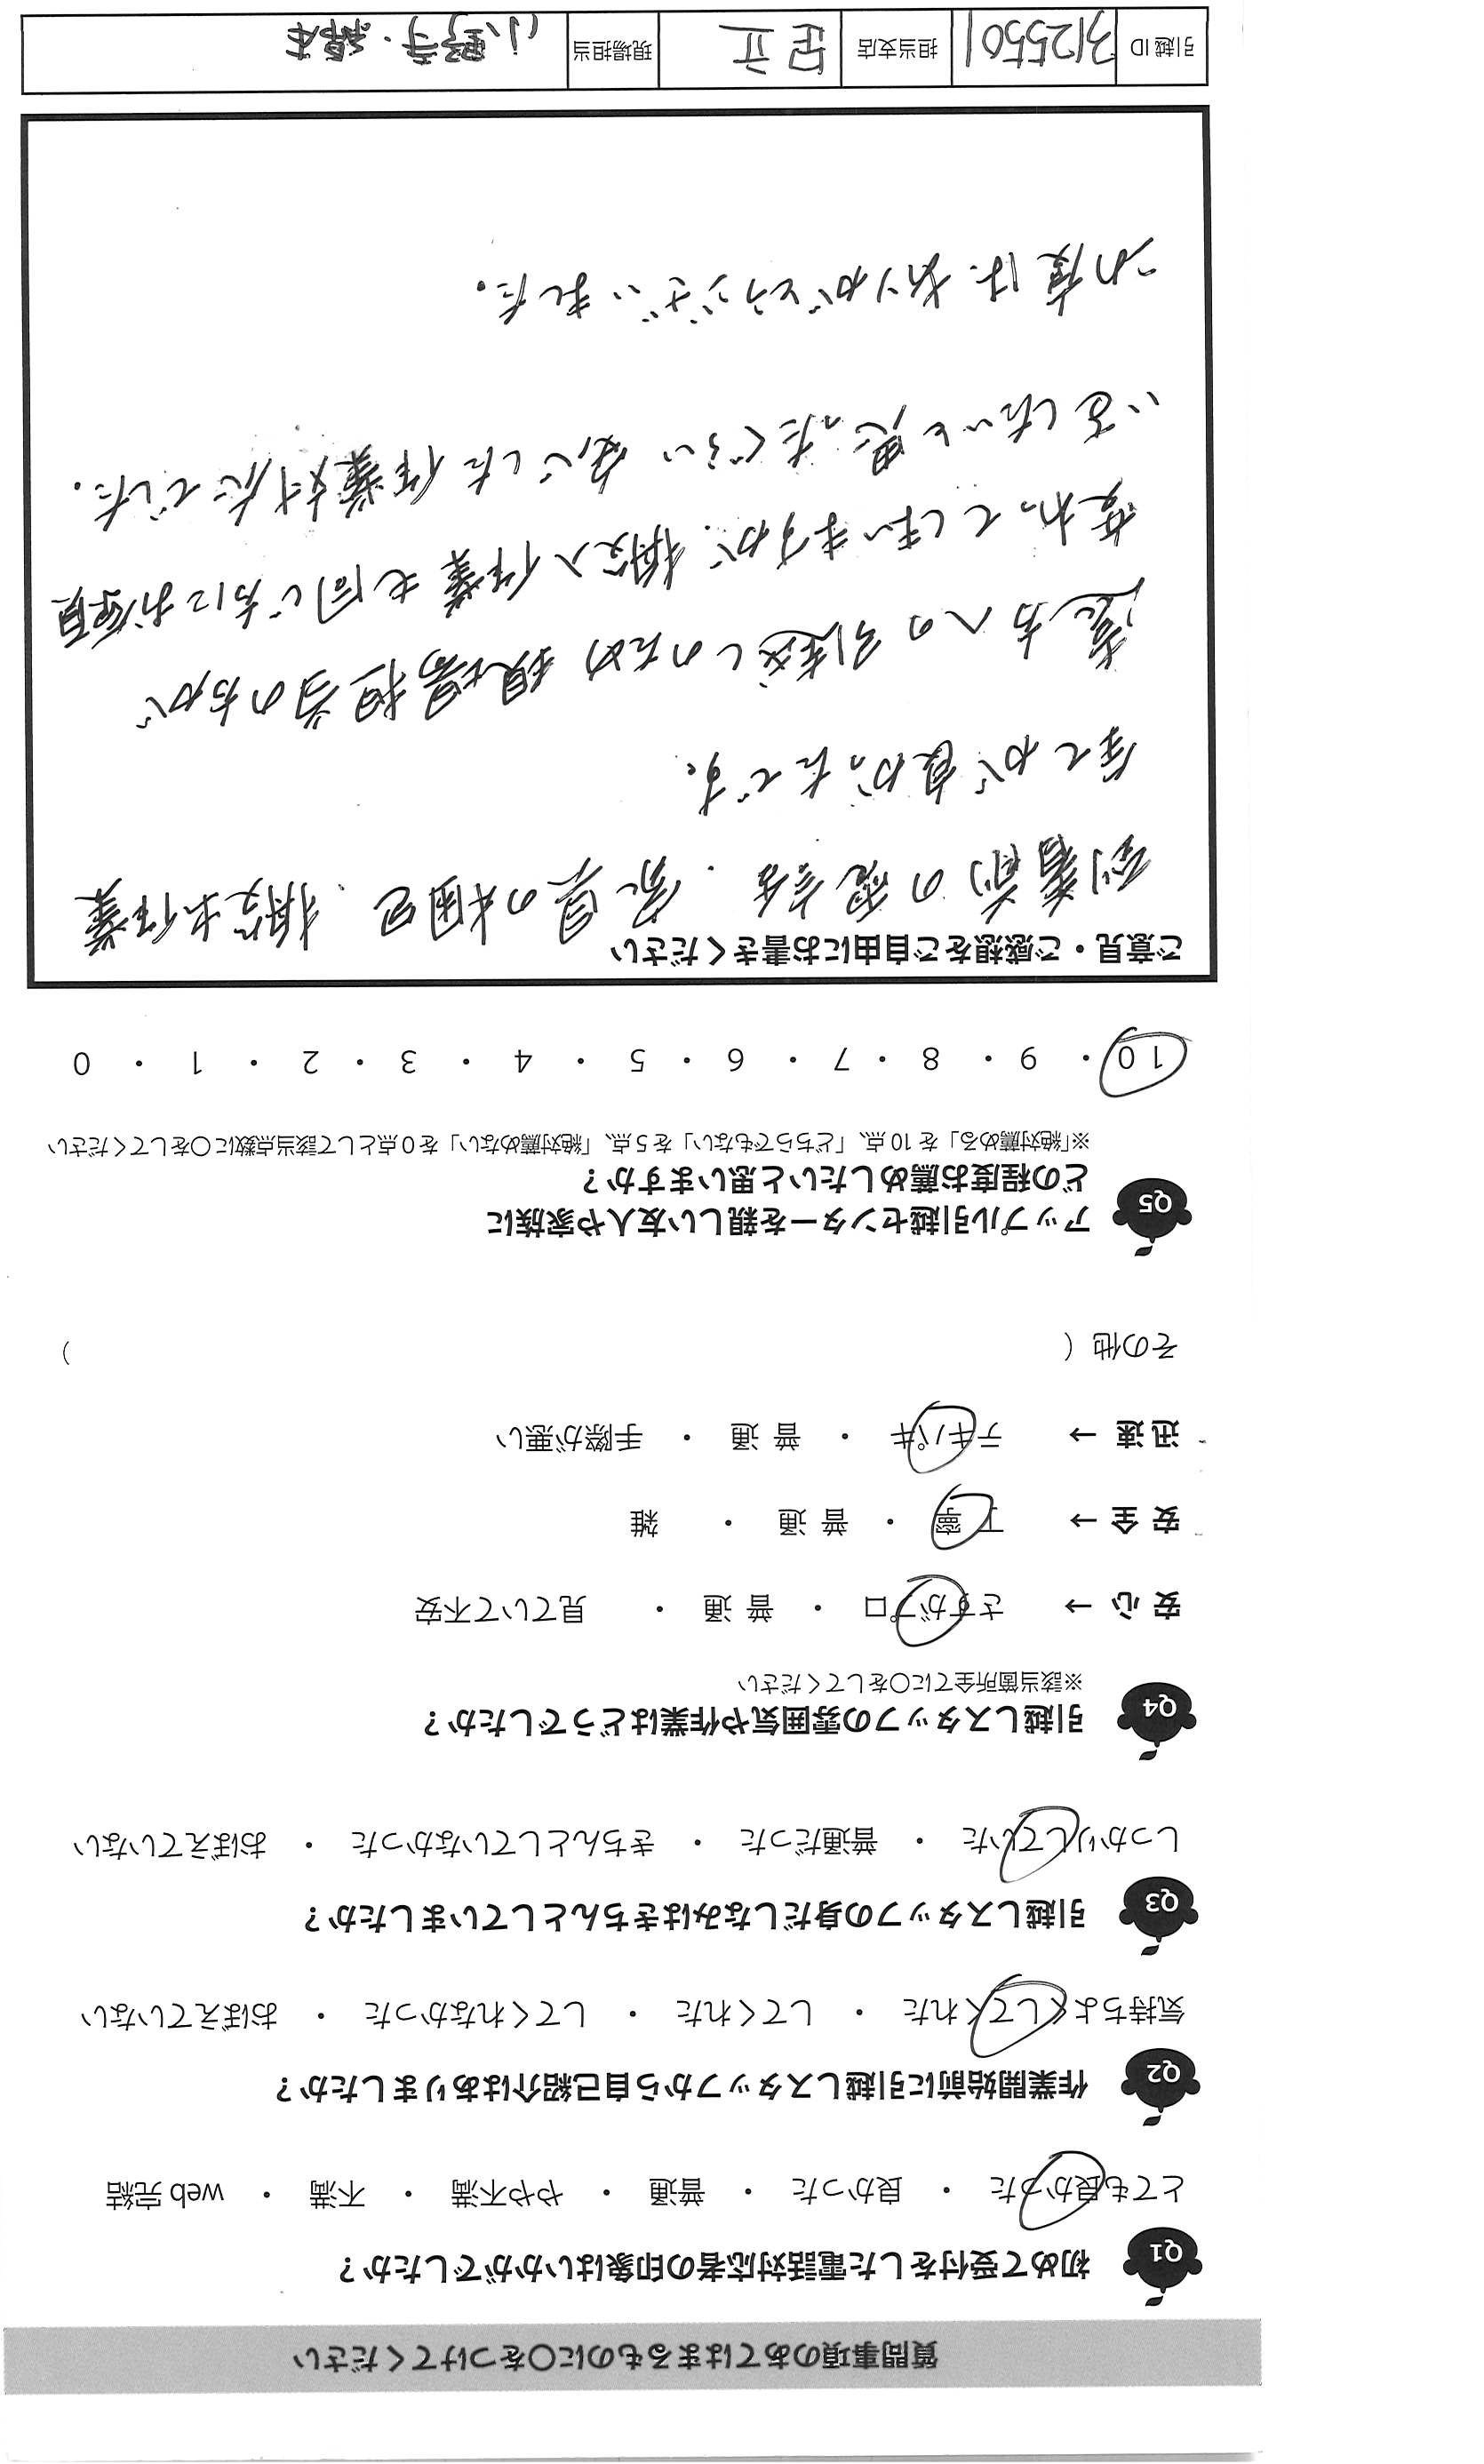 質問事項のあてはまるものに○をつけてください
Q1 初めて受付をした電話対応者の印象はいかがでしたか？
とても良かった ・ 良かった ・ 普通 ・ やや不満 ・ 不満 ・ web 完結
Q2 作業開始前に引越しスタッフから自己紹介はありましたか？
気持ちよくしてくれた ・ してくれた ・ してくれなかった ・ おぼえていない
Q3 引越しスタッフの身だしなみはきちんとしていましたか？
しっかりしていた ・ 普通だった ・ きちんとしていなかった ・ おぼえていない
Q4 引越しスタッフの雰囲気や作業はどうでしたか？
※該当箇所全てに○をしてください
安心 → さすがプロ ・ 普通 ・ 見ていて不安
安全 → 丁寧 ・ 普通 ・ 雑
迅速 → テキパキ ・ 普通 ・ 手際が悪い
その他（ ）
Q5 アップル引越センターを親しい友人や家族に
どの程度お薦めしたいと思いますか？
※「絶対薦める」を 10 点、「どちらでもない」を 5 点、「絶対薦めない」を 0 点として該当点数に○をしてください
10 ・ 9 ・ 8 ・ 7 ・ 6 ・ 5 ・ 4 ・ 3 ・ 2 ・ 1 ・ 0
ご意見・ご感想をご自由にお書きください
到着前の電話、家具の梱包、搬出作業
全てが良かったです。
遠方への引越しのため現場担当の方が
変わってしまいますが、搬入作業も同じ方にお願
いをしたいと思ったぐらい安心した作業対応でした。
この度は、ありがとうございました。
引越ID 3125501 担当支店 足立 現場担当 小野寺・綿本